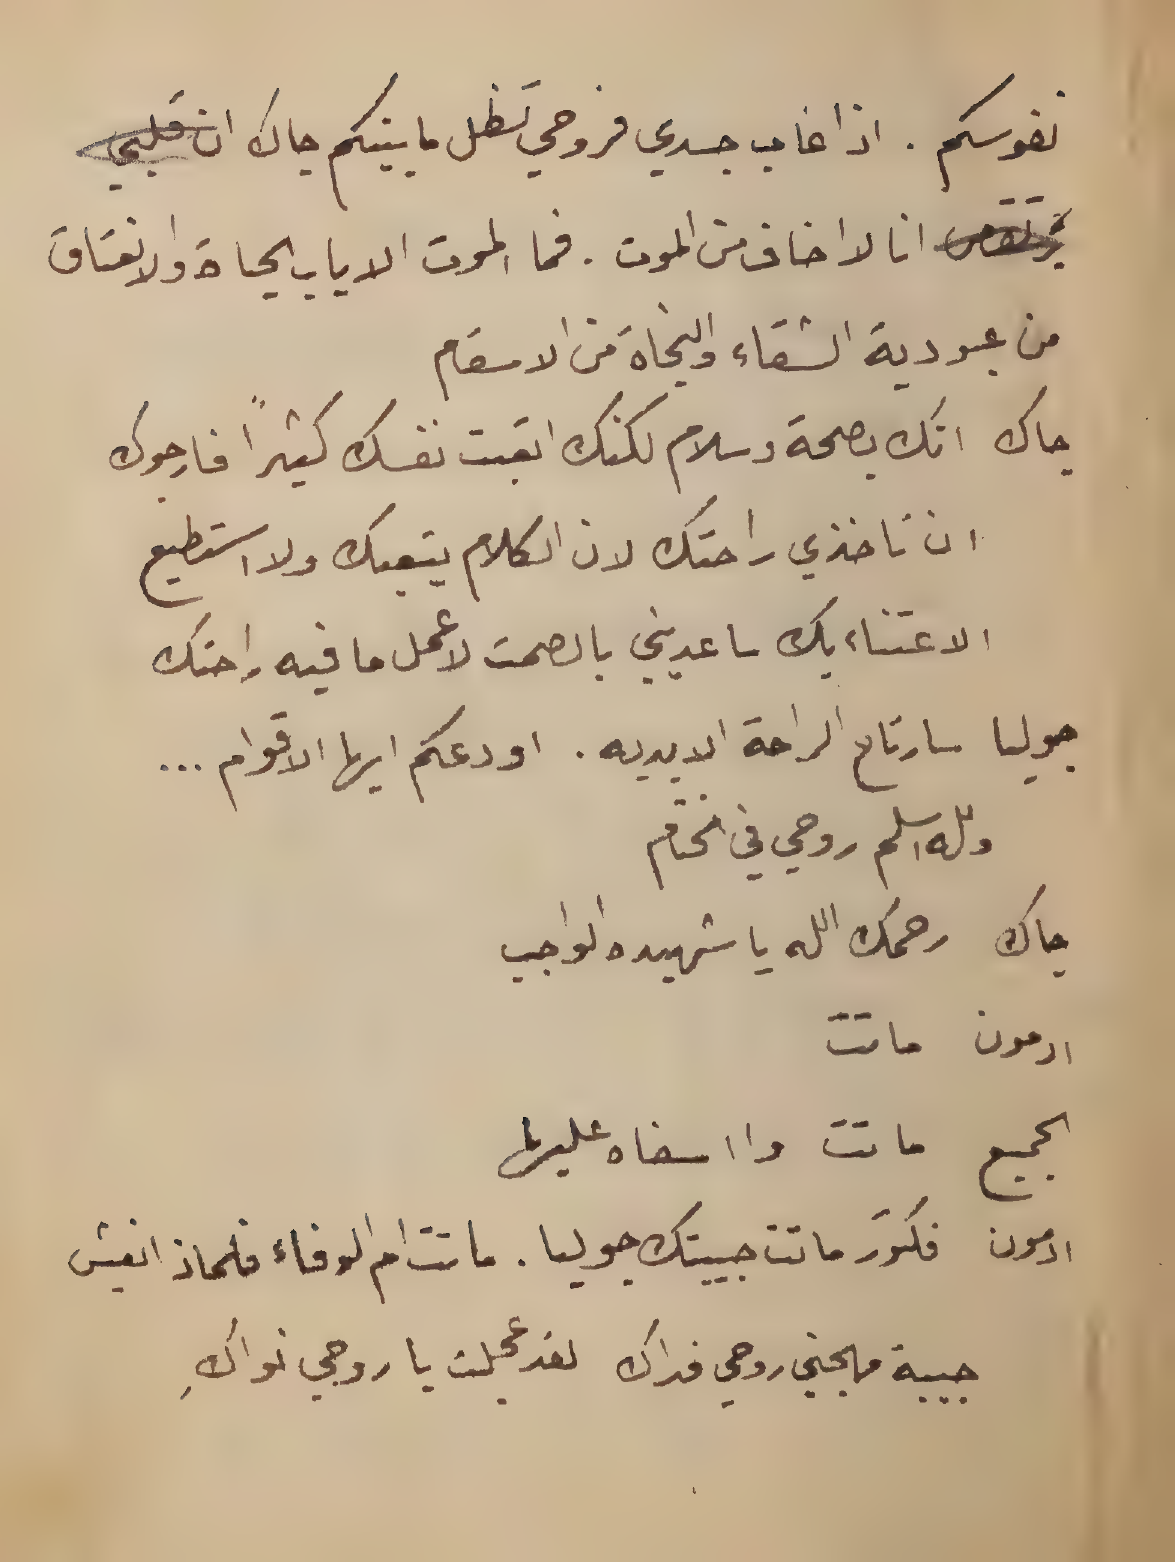 نفوسكم . اذا غاب جسدي فروحي تظل ما بينكم جاك ان قلبي
يرتقص انا لا اخاف من الموت . فما الموت الا باب الحياة والانعتاق
من عبودية الشقاء والنجاة من الاسقام
جاك انك بصحة وسلام لكنك اتعبت نفسك كثيراً فارجوك
ان تاخذي راحتك لان الكلام يتعبك ولا استطيع
الاعتناء بك ساعديني بالصمت لاعمل ما فيه راحتك
جوليا سارتاح الراحة الابديه . اودعكم ايها الاقوام ...
ولله اسلم روحي في الختام
جاك رحمك الله يا شهيده الواجب
ادمون ماتت
الجميع ماتت وا اسفاه عليها
ادمون فكتور ماتت حبيبتك جوليا . ماتت ام الوفاء فلماذا نعيش
حبيبة مهجتي روحي فداك لقد عجلت يا روحي نواكِ